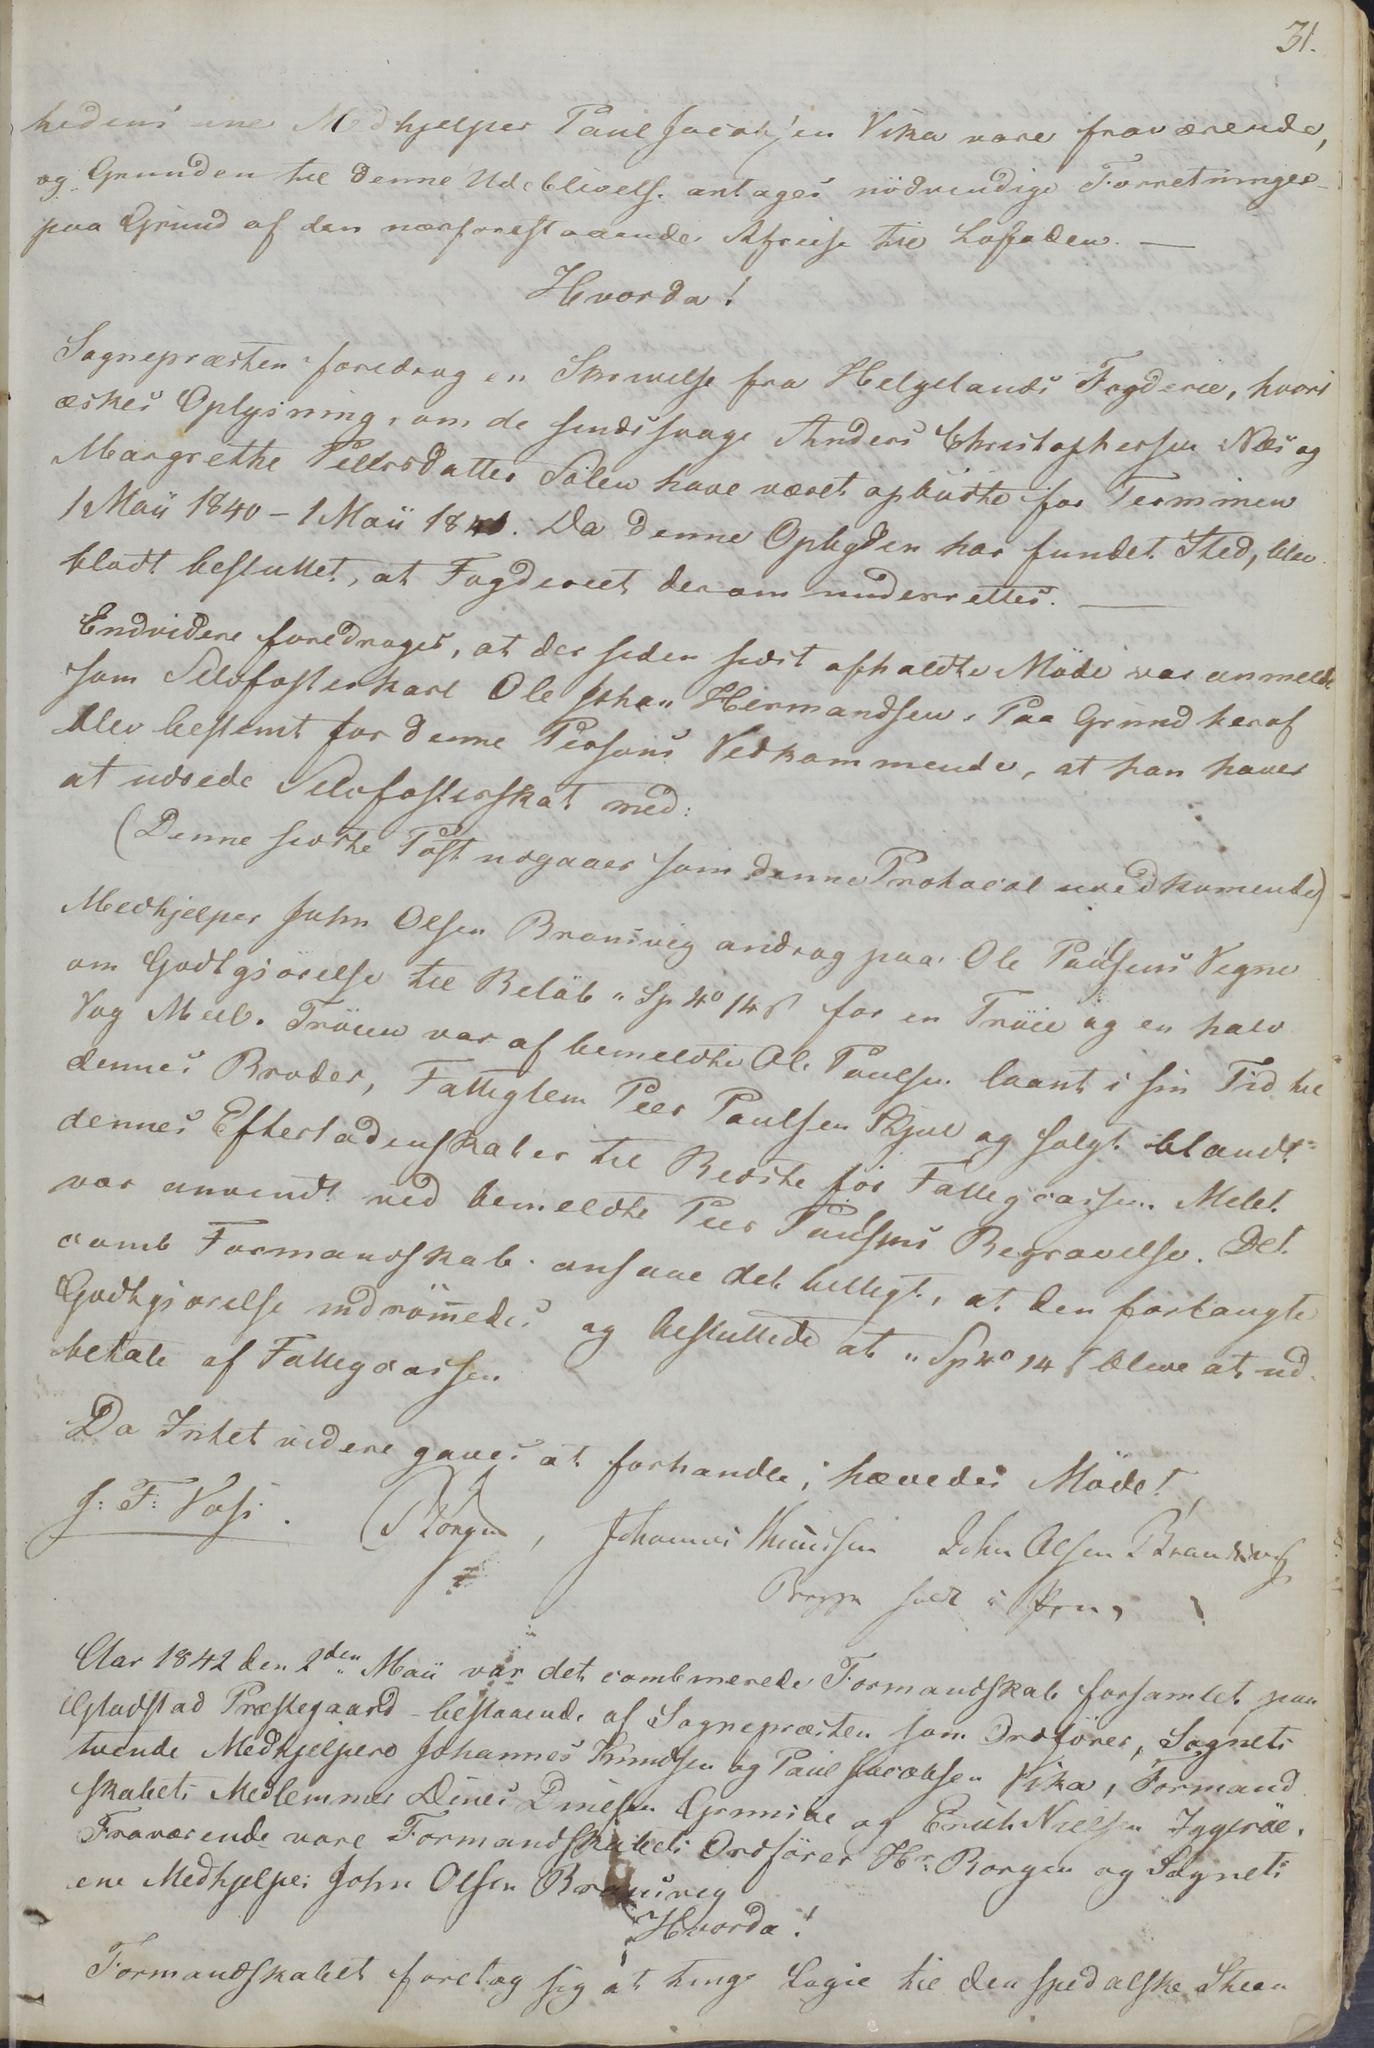 31.
hedens ene Medhjelper Paul Jacobsen Vika vare fraværende,
og Grunden til denne Udeblivelse antages nödvendige Forretninger
paa Grund af den nærforestaaende Afreise til Lofoden. —
Hvorda!
Sognepræsten foredrog en Skrivelse fra Helgelands Fogderie, hvori
æskes Oplysning, om de sindssvage Anders Christophersen Næs og
Margrethe Pettersdatter Sölen have været opbudte for Terminen
1 Maii 1840 – 1 Maii 1841. Da denne Opbyden har fundet Sted, blev
blodt besluttet, at Fogderiet derom underrettes. —
Endvidere foredroges, at der siden sidst afholdte Möde var anmeldt
som Selvfosterkarl Ole Johan Hermandsen. Paa Grund heraf
blev bestemt for denne Persons Vedkommende, at han haver
at udrede Selvfosterskat med:
(Denne sidste Post udgaaer som denne Protocol uvedkomende)
Medhjelper John Olsen Bransvig androg paa Ole Paulsens Vegne
om Godtgjörelse til Belöb " Sp 4o 14 s for en Tröie og en halv
Vog Meel. Tröien var af bemeldte Ole Paulsen laant i sin Tid til
dennes Broder, Fattiglem Peer Paulsen og solgt blandt
dennes Efterladenskaber til Bedste for Fattigcassen. Melet
var anvendt ved bemeldte Peer Paulsens Begravelse. Det
comb Formandskab ansaae det billigt, at den forlangte
Godtgjorelse indrömedes og besluttede at " Sp 4o 14 s blive at ud-
betale af Fattigcassen
Da Intet videre gaves at forhandle, hævedes Mödet
J: F: Voss. Borgen, Johannes Knudsen John Olsen Bransvig
i Pen,
Aar 1842 den 2den Maii var det combinerede Formandskab forsamlet paa
Gladstad Præstegaard – bestaaende af Sognepræsten som Ordförer, Sognets
tvende Medhjelpere Johannes Knudsen og Paul Jacobsen Vika, Formand
skabets Medlemmer Dines Dinesen og Erich Nielsen
Fraværende vare Formandskabets Ordförer Hr. Borgen og Sognets
ene Medhjelper John Olsen Bransvig
Hvorda!
Formandskabet foretog sig at tinge Logie til den spedalske Steen